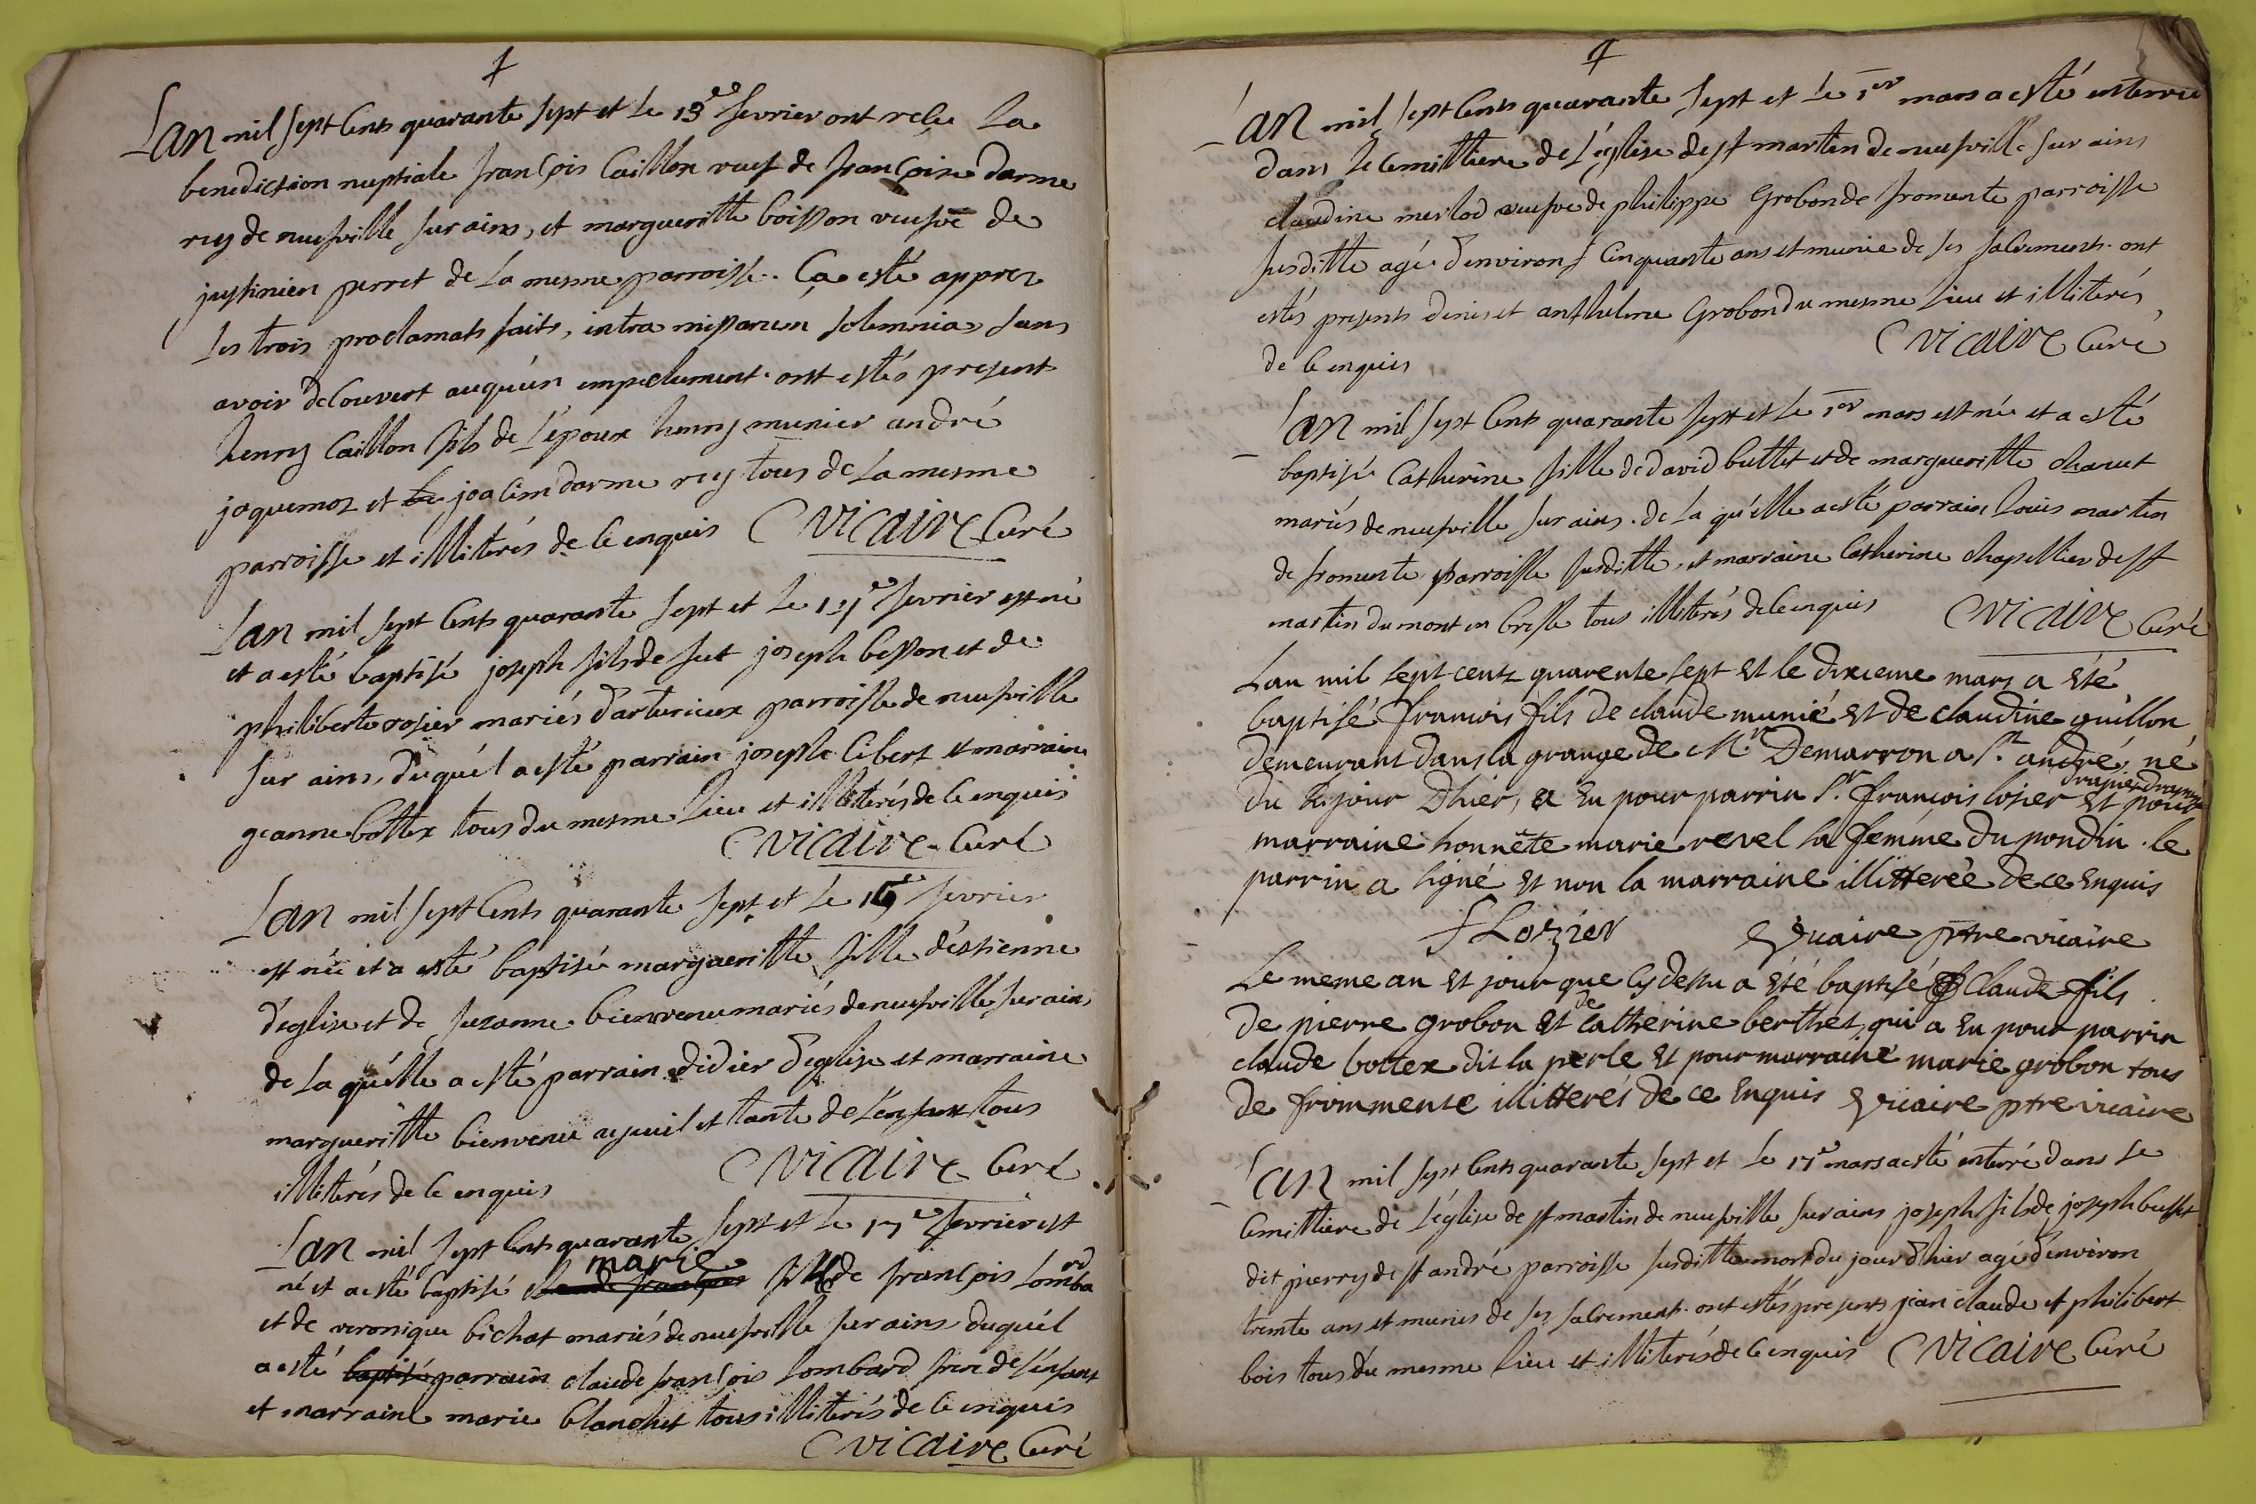 Lan mil sept cents quarante sept et le 13e fevrier ont reçu La
benediction nuptiale françois Caillon veuf de françoise darme
rey de neufville sur ains, et margueritte boisson veufve de
justinien perret de La mesme parroisse. Ça esté apprez
les trois proclamats faits, intra missarum solemnia, sans
avoir decouvert auqu'un empechement. ont estés present
henry Caillon fils de l'époux henry munier andré
joquemoz et joacim darme rey tous de La mesme
parroisse et illiterés de ce enquis C vicaire Curé
Lan mil sept cents quarante sept et le fevrier est né
et a esté baptisé joseph fils de feu joseph besson et de
philiberte rosier mariés d'arturieux parroisse de neufville
sur ains, duquél a esté parrain joseph Cibert et marraine
jeanne bottex tous du mesme lieu et illiterés de ce enquis
C vicaire Curé
Lan mil sept cents quarante sept et le fevrier
est née et a esté baptisé margueritte fille d'estienne
d'eglise et de suzanne bienvenu mariés de neufville sur ains,
de La qu'élle a esté parrain didier d'eglise et marraine
margueritte bienvenue ayeuil et tante de L'enfant tous
illiterés de ce enquis C vicaire Curé
Lan mil sept cents quarante sept et le 17e fevrier est
né et a esté baptisé marie fille de françois Lombard
et de veronique bichat mariés de neufville sur ains duquél
a esté baptisé parrain claude françois Lombard frere de l'enfant
et marraine marie blanchet tous illiterés de ce enquis
C vicaire Curé
Lan mil sept cents quarante sept et le 1er mars a esté enterrée
dans le cemittiere de L'église de st martin de neufville sur ains
claudine merlod veufve de philippe Grobon de fromente parroisse
susditte agée d'environs cinquante ans et munie de ses sacrements. ont
estés presents denis et anthelme Grobon du mesme lieu et illiterés,
de ce enquis C vicaire Curé
Lan mil sept cents quarante sept et le 1er mars est née et a esté
baptisé Catherine fille de david buttet et de margueritte charvet
mariés de neufville sur ains. de La qu'élle a esté parrain Louis martin
de fromente parroisse susditte, et marraine Catherine chapellier de st
martin du mont en bresse tous illiterés de ce enquis C vicaire Curé
Lan mil sept cents quarente sept et le dixieme mars a été
baptisé françois fils de claude munié et de claudine guillon
demeurant dans la grange de Mr Demarron a st andré, né
du jour Dhier, a eu pour parrin sr. françois losier et pour
marraine honnête marie revel la femme du pondin. le
parrin a signé et non la marraine illitterée de ce enquis
f Lozier vicaire ptre vicaire
Le meme an et jour que cy dessu a été baptisé Claude fils
de pierre grobon et de catherine berthet, qui a eu pour parrin
claude bottex dit la perle et pour marraine marie grobon tous
de frommente illitterés de ce enquis vicaire ptre vicaire
Lan mil sept cents quarante sept et le mars a esté enterré dans le
cemittiere de L'église de st martin de neufville sur ains joseph fils de joseph buffet
dit pierry de st andré parroisse susditte mort du jour d'hier agé d'environ
trente ans et munis de ses sacrement. ont estés presents jean claude et philibert
bois tous du mesme lieu et illiterés de ce enquis C vicaire Curé